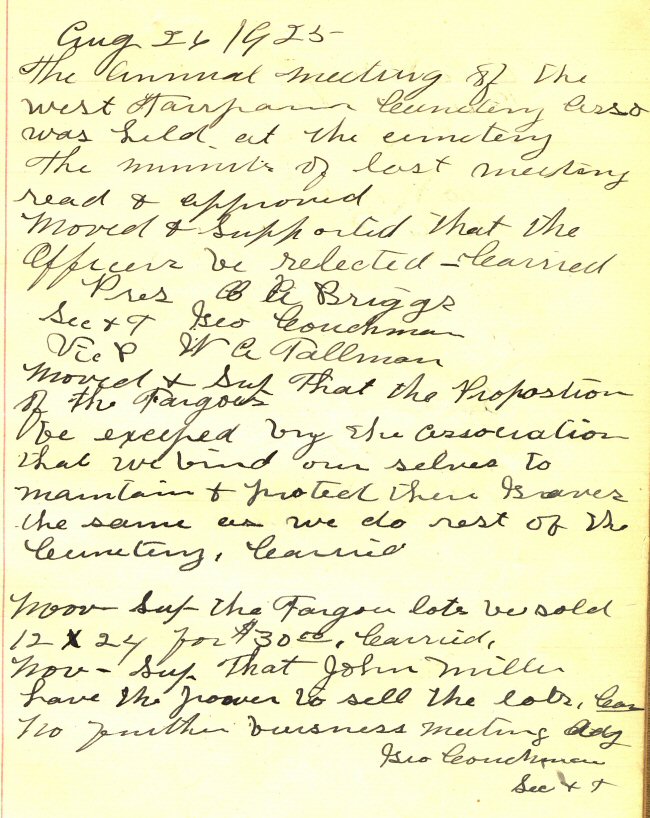 Aug 26 1925
The Annual meeting of the
West Cemetery Asso
was held at the cemetery
the minuits of last meeting
read & approved
Moved & Supported That the
Officers be relected - Carried
Pres Briggs
Sec & T Geo Couchman
Vic P W A Tallman
Moved & Sup That the Propostion
of the Fargous
be exceped by the Association
that we bind our selves to
maintain & protect there Graves
the same as we do rest of the
Cemetery, Carried
Moov - Sup the Fargou lots be sold
12 x 24 for $30.00, Carried,
Mov - Sup That John Miller
have the power to sell the lots, Car
No further buisness meeting Adj
Geo Couchman
Sec & T